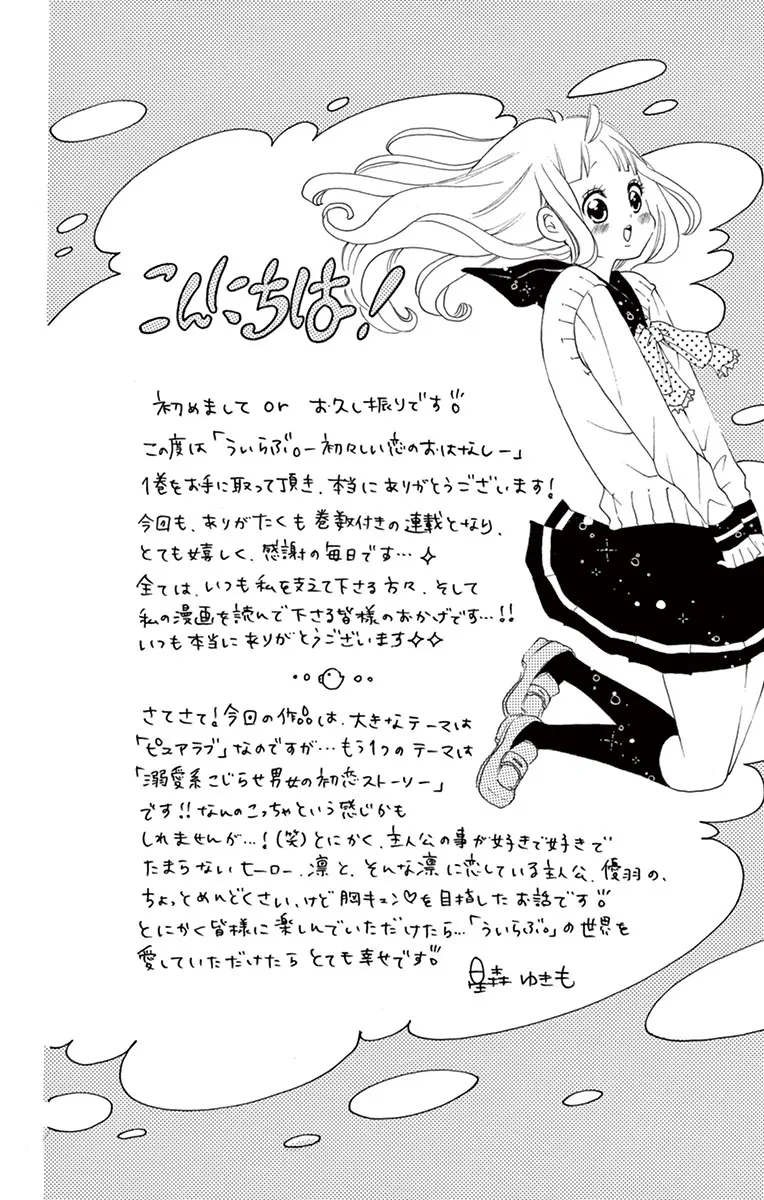 こんにちは!
初めまして or お久し振りです!!
この度は「ういらぶ。ー初々しい恋のおはなしー」
1巻をお手に取って頂き、本当にありがとうございます!
今回も、ありがたくも巻数付きの連載となり、
とても嬉しく、感謝の毎日です…✧
全ては、いつも私を支えて下さる方々、そして
私の漫画を読んで下さる皆様のおかげです…!!
いつも本当にありがとうございます✧✧
さてさて!今回の作品は、大きなテーマは
「ピュアラブ」なのですが…もう1つのテーマは
「溺愛系こじらせ男女の初恋ストーリー」
です!!なんのこっちゃという感じかも
しれませんが…!(笑)とにかく、主人公の事が好きで好きで
たまらないヒーロー、凛と、そんな凛に恋している主人公、優羽の、
ちょっとめんどくさい、けど胸キュン♡を目指したお話です!!
とにかく皆様に楽しんでいただけたら…「ういらぶ。」の世界を
愛していただけたらとても幸せです!!
星森ゆきも